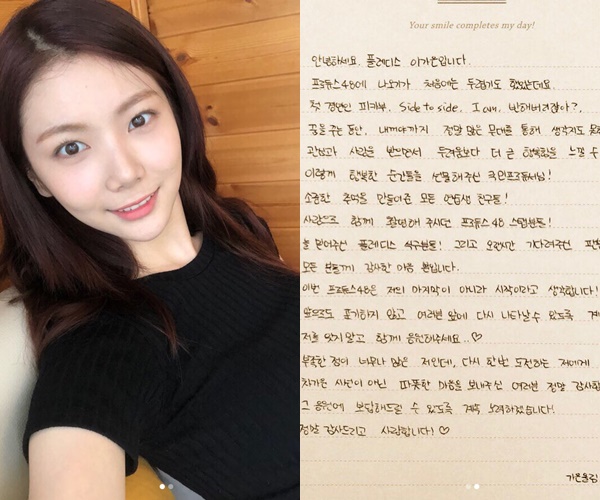 Your smile completes my day!
안녕하세요. 플레디스 이가은입니다.
프로듀스48에 나오기가 처음에는 두렵기도 했었는데요.
첫 경연인 피카부, Side to side, I am, 반해버리잖아?,
꿈을 꾸는 동안, 내꺼야까지 정말 많은 무대를 통해 생각지도 못한
관심과 사랑을 받으면서 두려움보다 더 큰 행복함을 느낄 수
이렇게 행복한 순간들을 선물해주신 국민프로듀서님!
소중한 추억을 만들어준 모든 연습생 친구들!
사랑으로 함께 촬영해 주시던 프로듀스48 스텝분들!
늘 믿어주신 플레디스 식구분들! 그리고 오랜시간 기다려주신 팬분
모든 분들께 감사한 마음 뿐입니다.
이번 프로듀스48은 저의 마지막이 아니라 시작이라고 생각합니다!
앞으로도 포기하지 않고 여러분 앞에 다시 나타날 수 있도록
저를 잊지말고 함께 응원해주세요..♡
부족한 점이 너무나 많은 저인데, 다시 한번 도전하는 저에게
차가운 시선이 아닌 따뜻한 마음을 보내주신 여러분 정말 감사합
그 응원에 보답해드릴 수 있도록 계속 노력하겠습니다!
정말 감사드리고 사랑합니다! ♡
가은올림